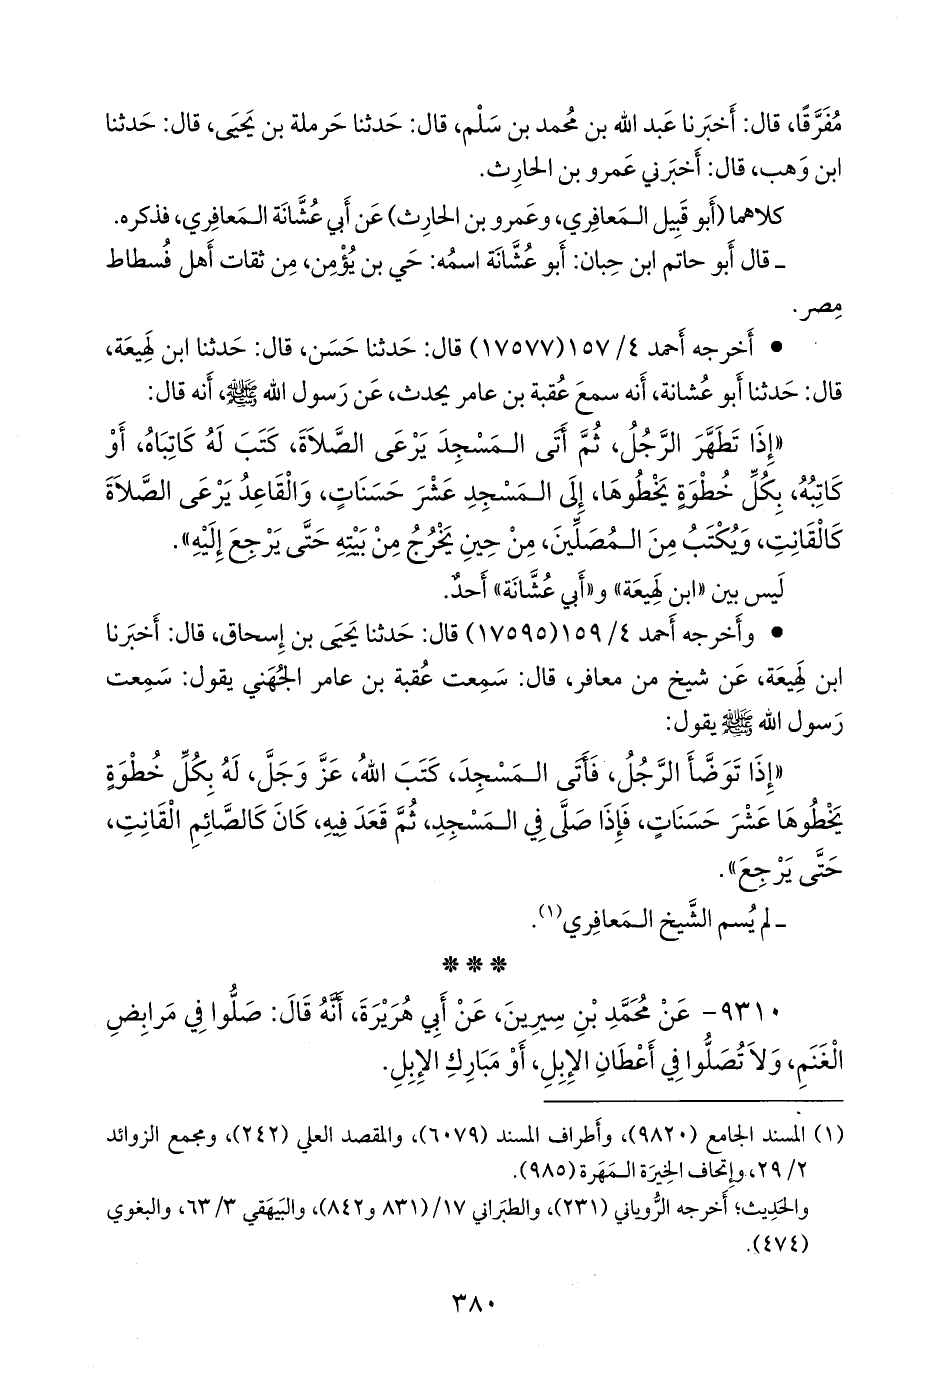 مُفَرَّقًا، قال: أَخبَرنا عَبد الله بن مُحمد بن سَلْم، قال: حَدثنا حَرملة بن يَحيَى، قال: حَدثنا
ابن وَهب، قال: أَخبَرني عَمرو بن الحارِث.
كلاهما (أَبو قَبِيل الـمَعافِري، وعَمرو بن الحارِث) عَن أَبي عُشَّانَة الـمَعافِري، فذكره.
ـ قال أَبو حاتم ابن حِبان: أَبو عُشَّانَة اسمُه: حَي بن يُؤْمِن، مِن ثقات أَهل فُسطاط
مِصر.
• أَخرجه أَحمد ٤/ ١٥٧(١٧٥٧٧) قال: حَدثنا حَسَن، قال: حَدثنا ابن لَهِيعَة،
قال: حَدثنا أَبو عُشانة، أَنه سمعَ عُقبة بن عامر يحدث، عَن رَسول الله ﷺ، أَنه قال:
«إِذَا تَطَهَّرَ الرَّجُلُ، ثُمَّ أَتَى الـمَسْجِدَ يَرْعَى الصَّلاَةَ، كَتَبَ لَهُ كَاتِبَاهُ، أَوْ
كَاتِبُهُ، بِكُلِّ خُطْوَةٍ يَخْطُوهَا، إِلَى الـمَسْجِدِ عَشْرَ حَسَنَاتٍ، وَالْقَاعِدُ يَرْعَى الصَّلاَةَ
كَالْقَانِتِ، وَيُكْتَبُ مِنَ الـمُصَلِّينَ، مِنْ حِينِ يَخْرُجُ مِنْ بَيْتِهِ حَتَّى يَرْجِعَ إِلَيْهِ».
لَيس بين «ابن لَهِيعَة» و«أَبي عُشَّانَة» أَحدٌ.
• وأَخرجه أَحمد ٤/ ١٥٩(١٧٥٩٥) قال: حَدثنا يَحيَى بن إِسحاق، قال: أَخبَرنا
ابن لَهِيعَة، عَن شيخ من معافر، قال: سَمِعت عُقبة بن عامر الجُهَني يقول: سَمِعت
رَسول الله ﷺ يقول:
«إِذَا تَوَضَّأَ الرَّجُلُ، فَأَتَى الـمَسْجِدَ، كَتَبَ اللهُ، عَزَّ وَجَلَّ، لَهُ بِكُلِّ خُطْوَةٍ
يَخْطُوهَا عَشْرَ حَسَنَاتٍ، فَإِذَا صَلَّى فِي الـمَسْجِدِ، ثُمَّ قَعَدَ فِيهِ، كَانَ كَالصَّائِمِ الْقَانِتِ،
حَتَّى يَرْجِعَ».
ـ لم يُسم الشَّيخ الـمَعافِري(١).
* * *
٩٣١٠- عَنْ مُحَمَّدِ بْنِ سِيرِينَ، عَنْ أَبِي هُرَيْرَةَ، أَنَّهُ قَالَ: صَلُّوا فِي مَرَابِضِ
الْغَنَمِ، وَلاَ تُصَلُّوا فِي أَعْطَانِ الإِبِلِ، أَوْ مَبَارِكِ الإِبِلِ.
(١) المسند الجامع (٩٨٢٠)، وأَطراف المسند (٦٠٧٩)، والمقصد العلي (٢٤٢)، ومجمع الزوائد
٢/ ٢٩، وإِتحاف الخِيرَة الـمَهَرة (٩٨٥).
والحَدِيث؛ أَخرجه الرُّوياني (٢٣١)، والطبَراني ١٧/ (٨٣١ و٨٤٢)، والبَيهَقي ٣/ ٦٣، والبغوي
(٤٧٤).
٣٨٠